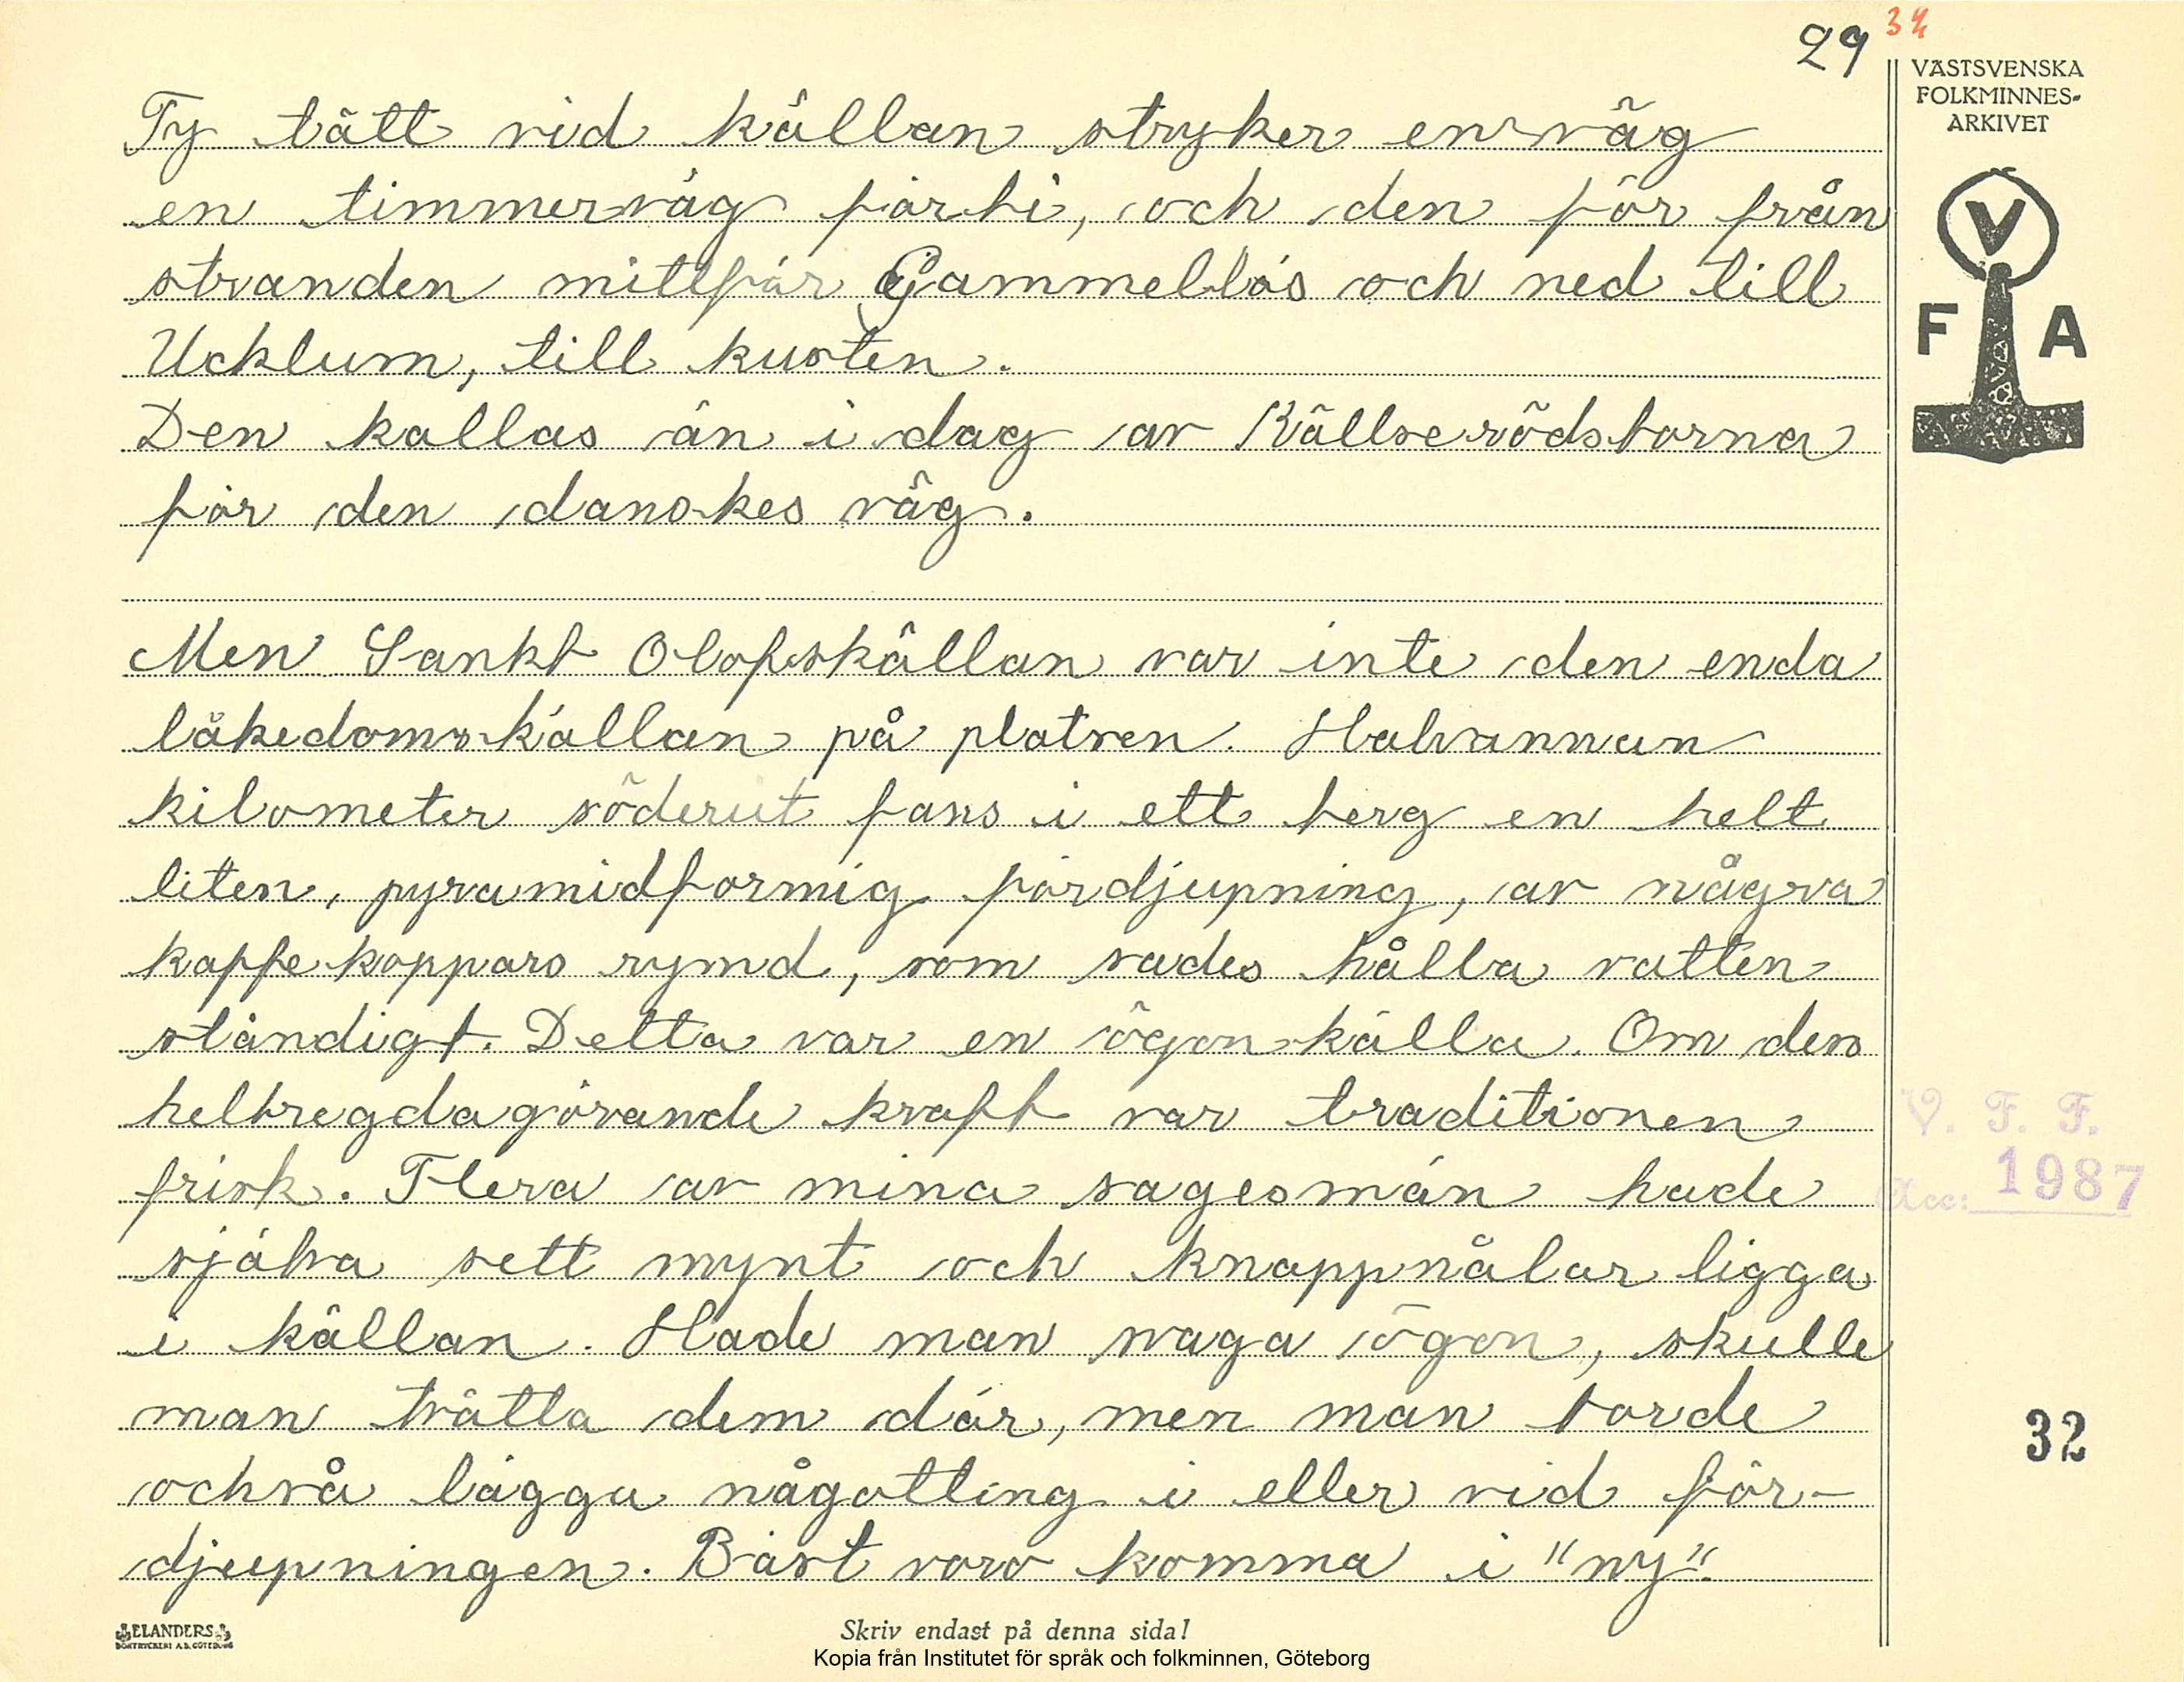 29 34
VÄSTSVENSKA
FOLKMINNES-
ARKIVET
V
F A
Ty tätt vid källan stryker en väg
en timmerväg förbi, och den för från
stranden mittför Gammellås och ned till
Ucklum, till kusten.
Den kallas än i dag av Källserödsborna
för den danskes väg.
Men Sankt Olofskällan var inte den enda
läkedomskällan på platsen. Halvannan
kilometer söderut fans i ett berg en helt
liten, pyramidformig fördjupning, av några
kaffekoppars rymd, som sades hålla vatten
ständigt. Detta var en ögonkälla. Om dess
helbregdagörande kraft var traditionen
frisk. Flera av mina sagesmän hade
själva sett mynt och knappnålar ligga
i källan. Hade man svaga ögon, skulle
man tvätta dem där, men man borde
också lägga någotting i eller vid för-
djupningen. Bäst voro komma i "ny".
V. F. F.
Acc: 1987
32
ELANDERS
BOKTRYCKERI A.B. GÖTEBORG
Skriv endast på denna sida!
Kopia från Institutet för språk och folkminnen, Göteborg